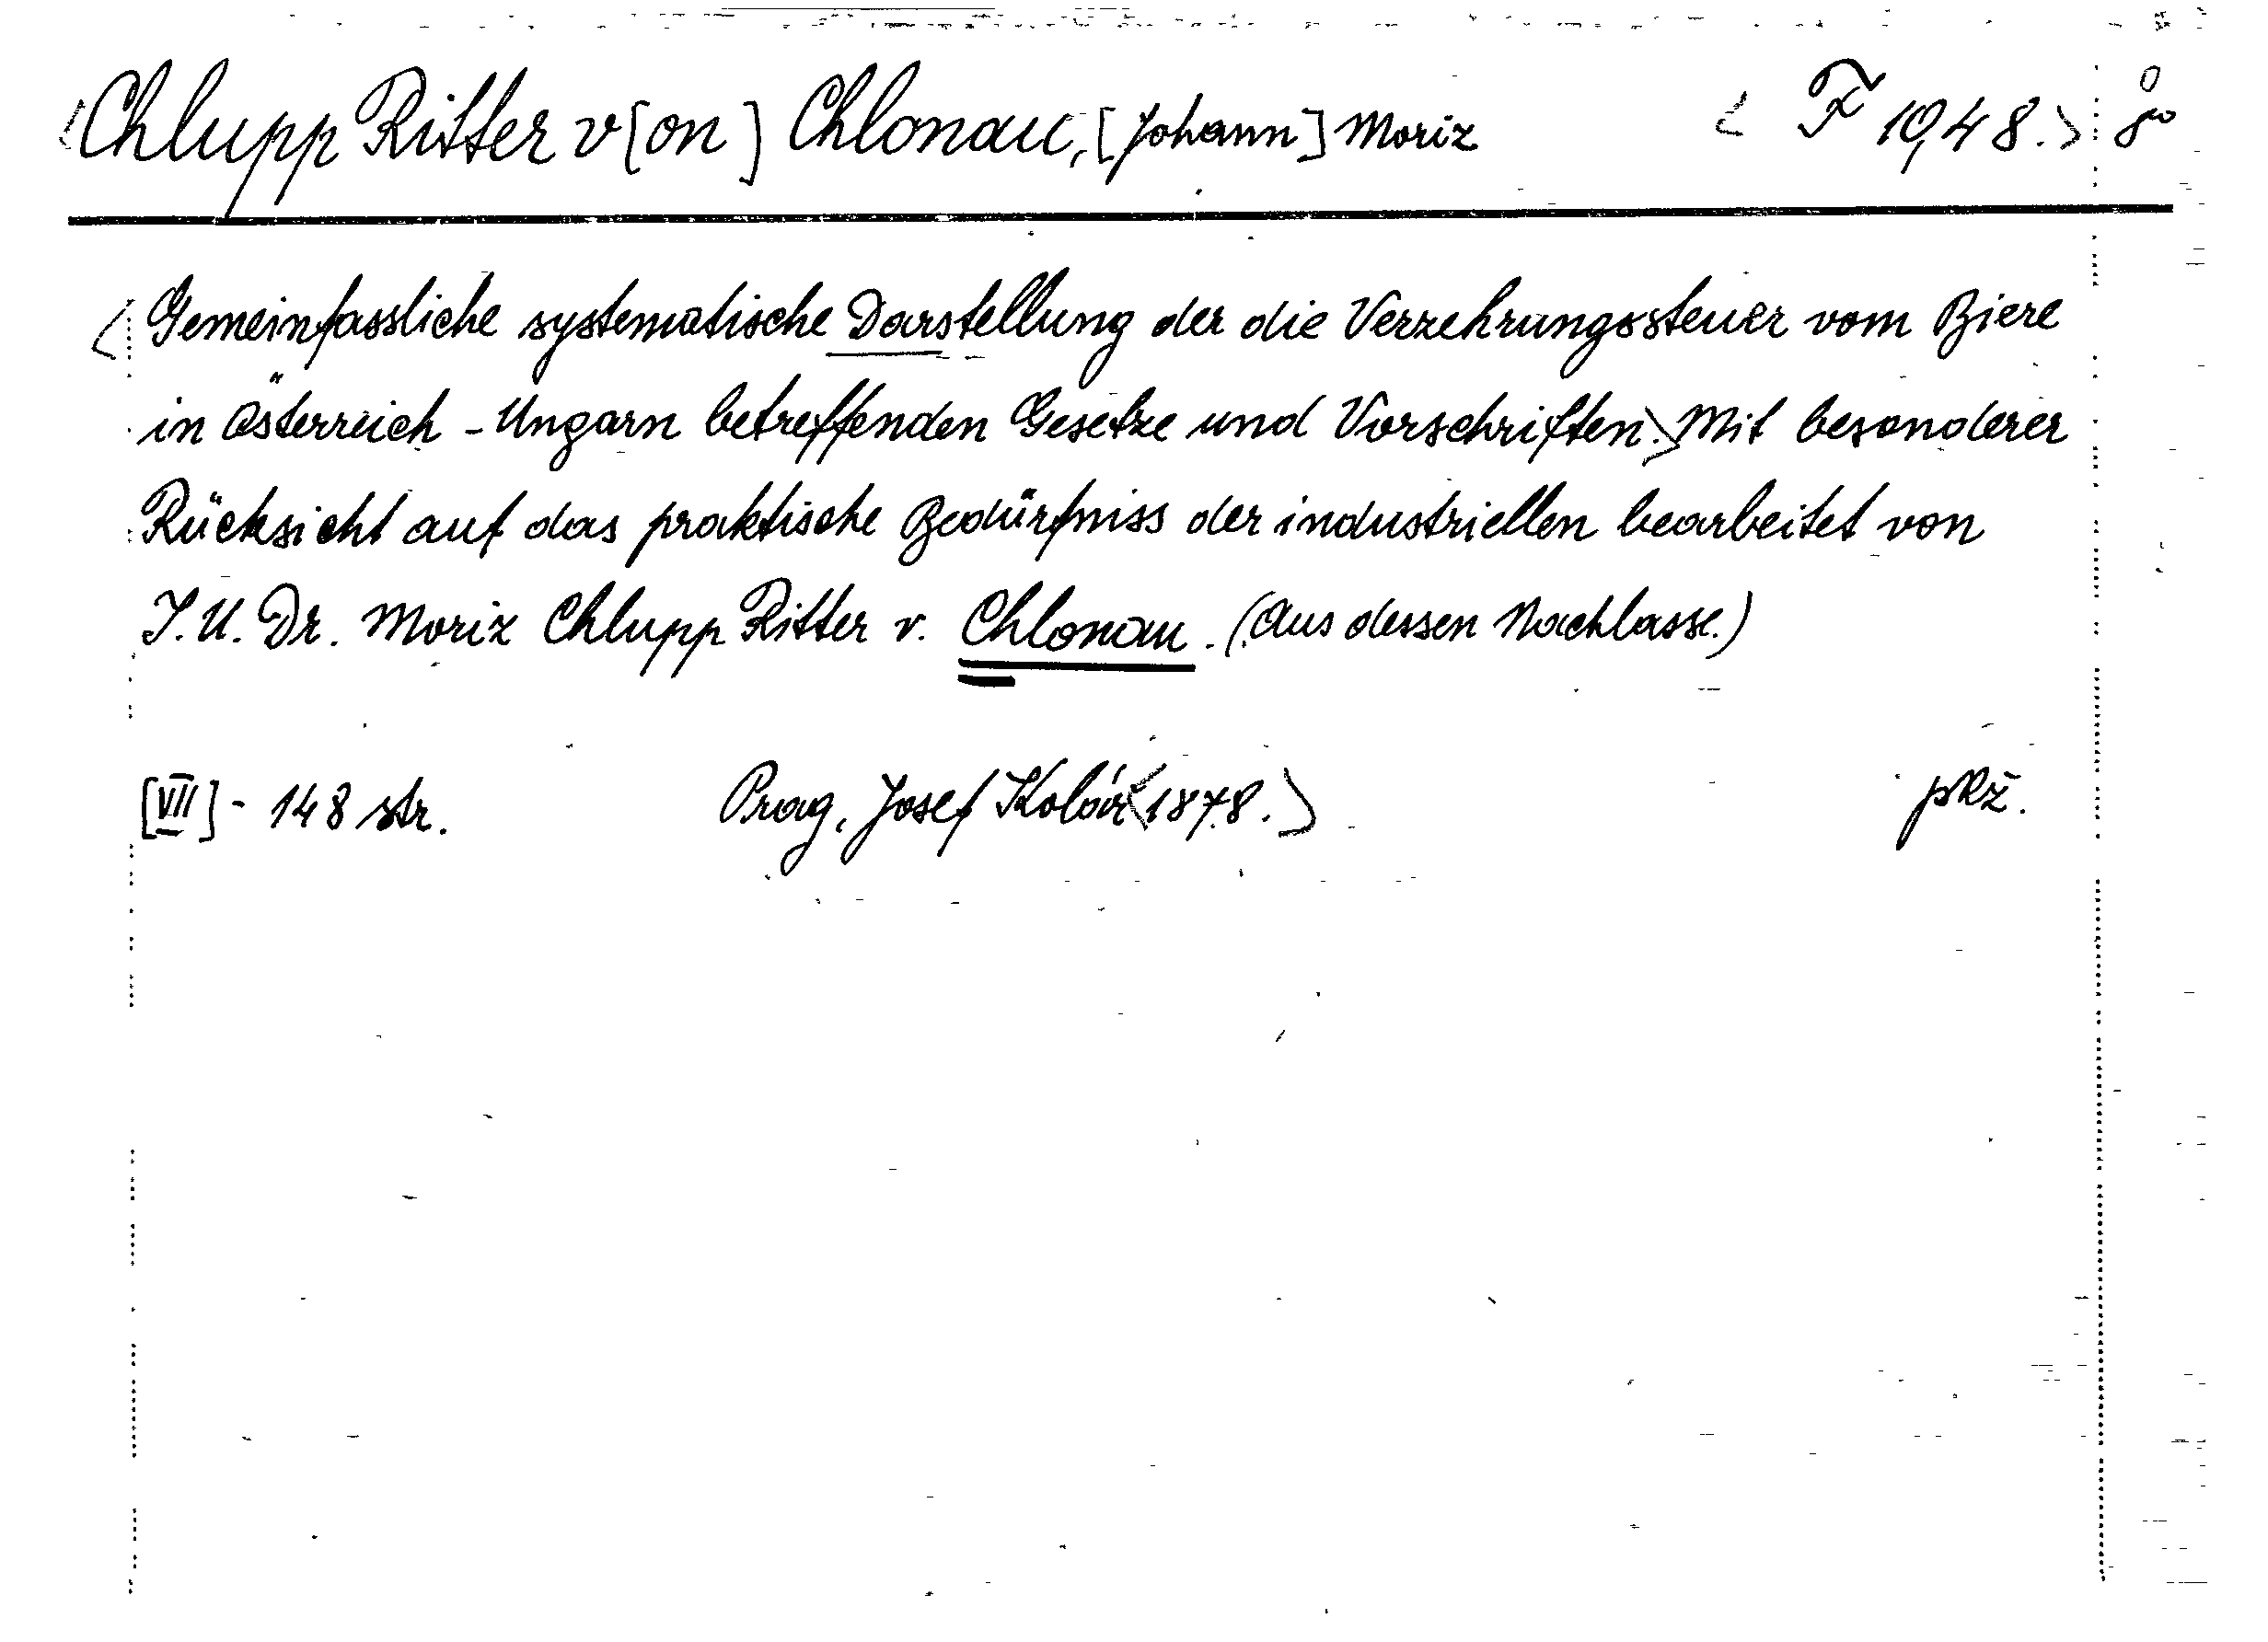 <Chlupp Ritter v[on] Chlonau, [Johann] Moriz < F 1948.> 8°
<Gemeinfassliche systematische Darstellung der die Verzehrungssteuer vom Biere
in Österreich - Ungarn betreffenden Gesetze und Vorschriften.> Mit besonderer
Rücksicht auf das praktische Bedürfniss der industriellen bearbeitet von
J. U. Dr. Moriz Chlupp Ritter v. Chlonau. (Aus dessen Nachlasse.)
[VII] - 148 str. Prag, Josef Kolář <1878.> pkž.